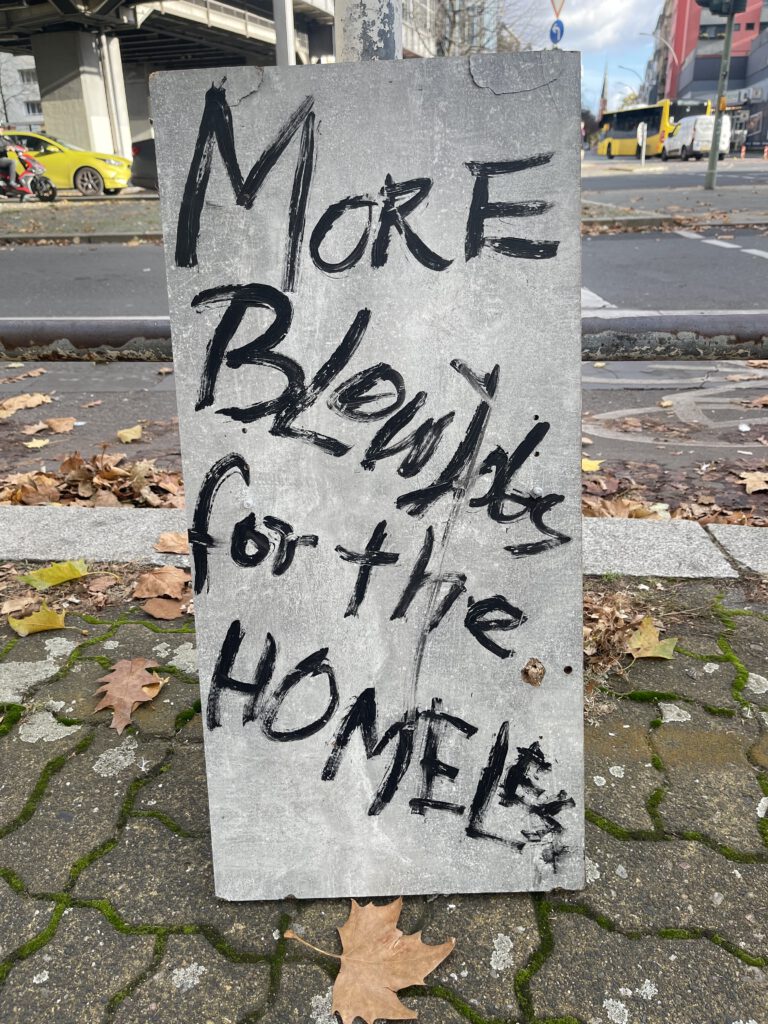 MORE
BLOWJobs
for the
HOMELESS